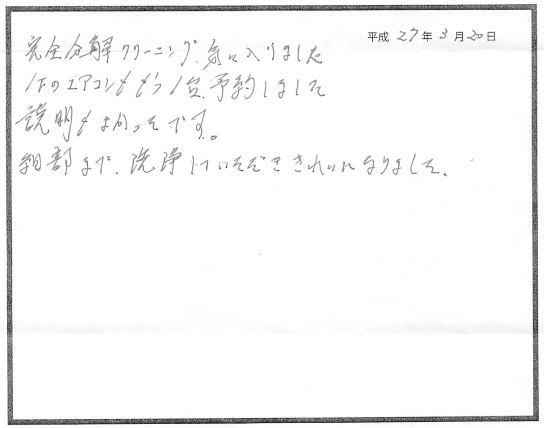 平成 27年 3月 20日
完全分解クリーニング、気に入りました
1Fのエアコンももう1台、予約しました
説明もよかったです。
細部まで、洗浄していただききれいになりました。